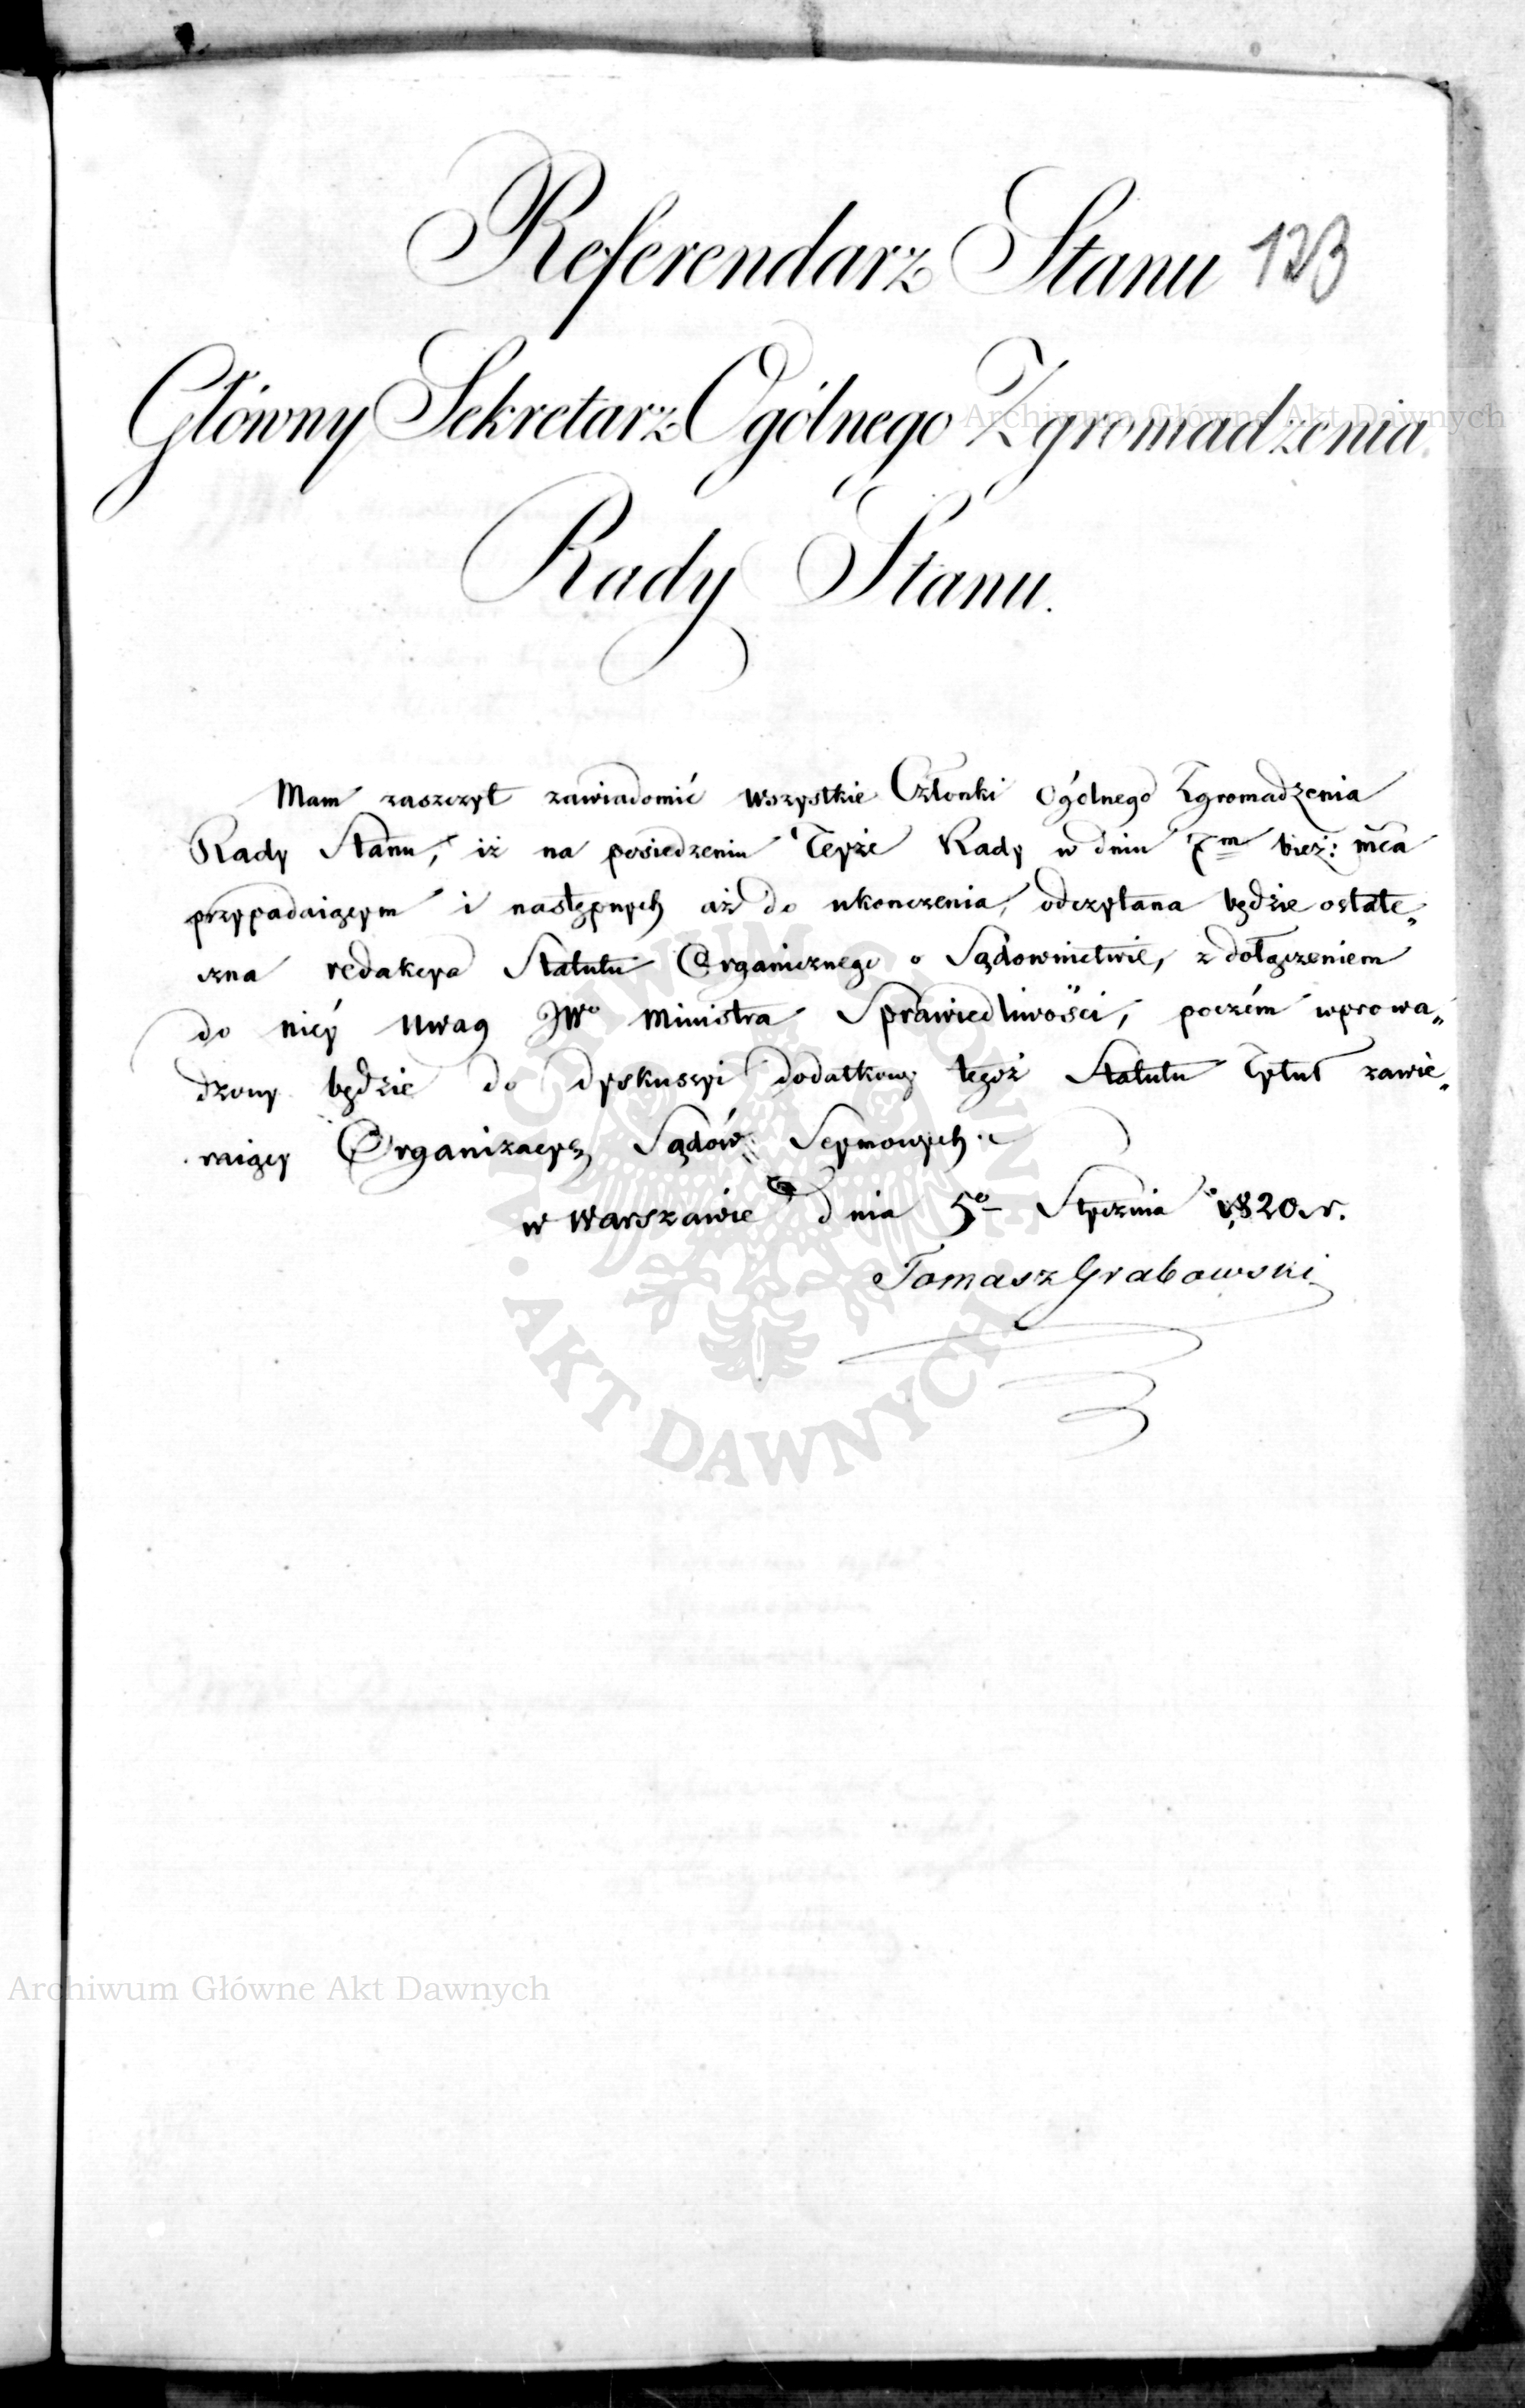 Referendarz Stanu 123
Główny Sekretarz Ogólnego Zgromadzenia
Rady Stanu.
Mam zaszczyt zawiadomić wszystkie Członki Ogólnego Zgromadzenia
Rady Stanu, iż na posiedzeniu Teyże Rady w dniu 7m bież: mca
przypadaiącym i następnych aż do ukonczenia, odczytana będzie ostate„
czna redakcya Statutu Organicznego o Sądownictwie, z dołączeniem
do niey uwag JWo Ministra Sprawiedliwości, poczém wprowa„
dzony będzie do dyskussyi dodatkowy tegoż Statutu Tytuł zawie„
raiący Organizacyą Sądów Seymowych.
w Warszawie dnia 5o Stycznia 1820 r.
Tomasz Grabowski
Archiwum Główne Akt Dawnych
ARCHIWUM GŁÓWNE AKT DAWNYCH
Archiwum Główne Akt Dawnych